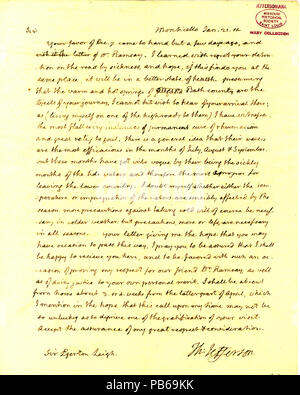 JEFFERSONIANA
MISSOURI
HISTORICAL
SOCIETY
BIXBY COLLECTION
Sir Monticello Jan. 21. 11
Your favor of Dec. 9 came to hand but a few days ago, and
with it the letter of Dr Ramsay. I learned with regret your deten-
tion on the road by sickness and hope, if this finds you at the
same place, it will be in a better state of health. presuming
that the warm and hot springs of Bath county are the
objects of your journey, I cannot but wish to hear of your arrival there;
as (living myself on one of the high roads to them) I have witnessed
the most flattering evidences of permanent cure of rheumatism
and great relief to gout. There is a general idea that their waters
are the most efficacious in the months of July, August & September.
but these months have got into vogue by their being the sickly
months of the tide waters and therefore the more
leaving the lower country. I doubt myself whether either the tem-
perature or impregnation of the waters are sensibly affected by the
season. more precautions against taking cold will of course be neces-
sary, in colder weather but precautions, more or less, are necessary
in all seasons. Your letter giving me the hope that you may
have occasion to pass this way, I pray you to be assured that I shall
be happy to receive you here, and to be favored with such an oc-
casion of proving my respect for our friend Dr Ramsay, as well
as of doing justice to your own personal merit. I shall be absent
from home about 2. or 3. weeks from the latter part of April, which
I mention in the hope that this call upon my time may not be
so unlucky as to deprive me of the gratification of your visit.
Accept the assurances of my great respect & consideration.
Th: Jefferson
Sir Egerton Leigh.
alamy